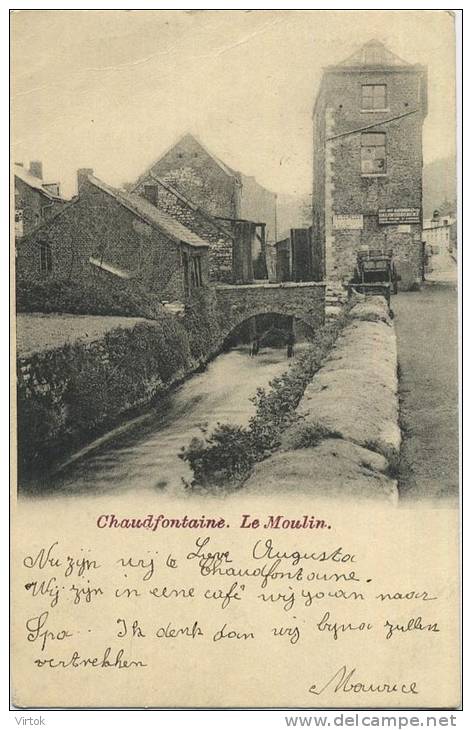 Chaudfontaine. Le Moulin.
Lieve Augusta
Nu zijn wij te Chaudfontaine.
Wij zijn in eene café wij gaan naar
Spa.. Ik denk dan wij byna zullen
vertrekken
Maurice
Virtok
http://www.delcampe.net